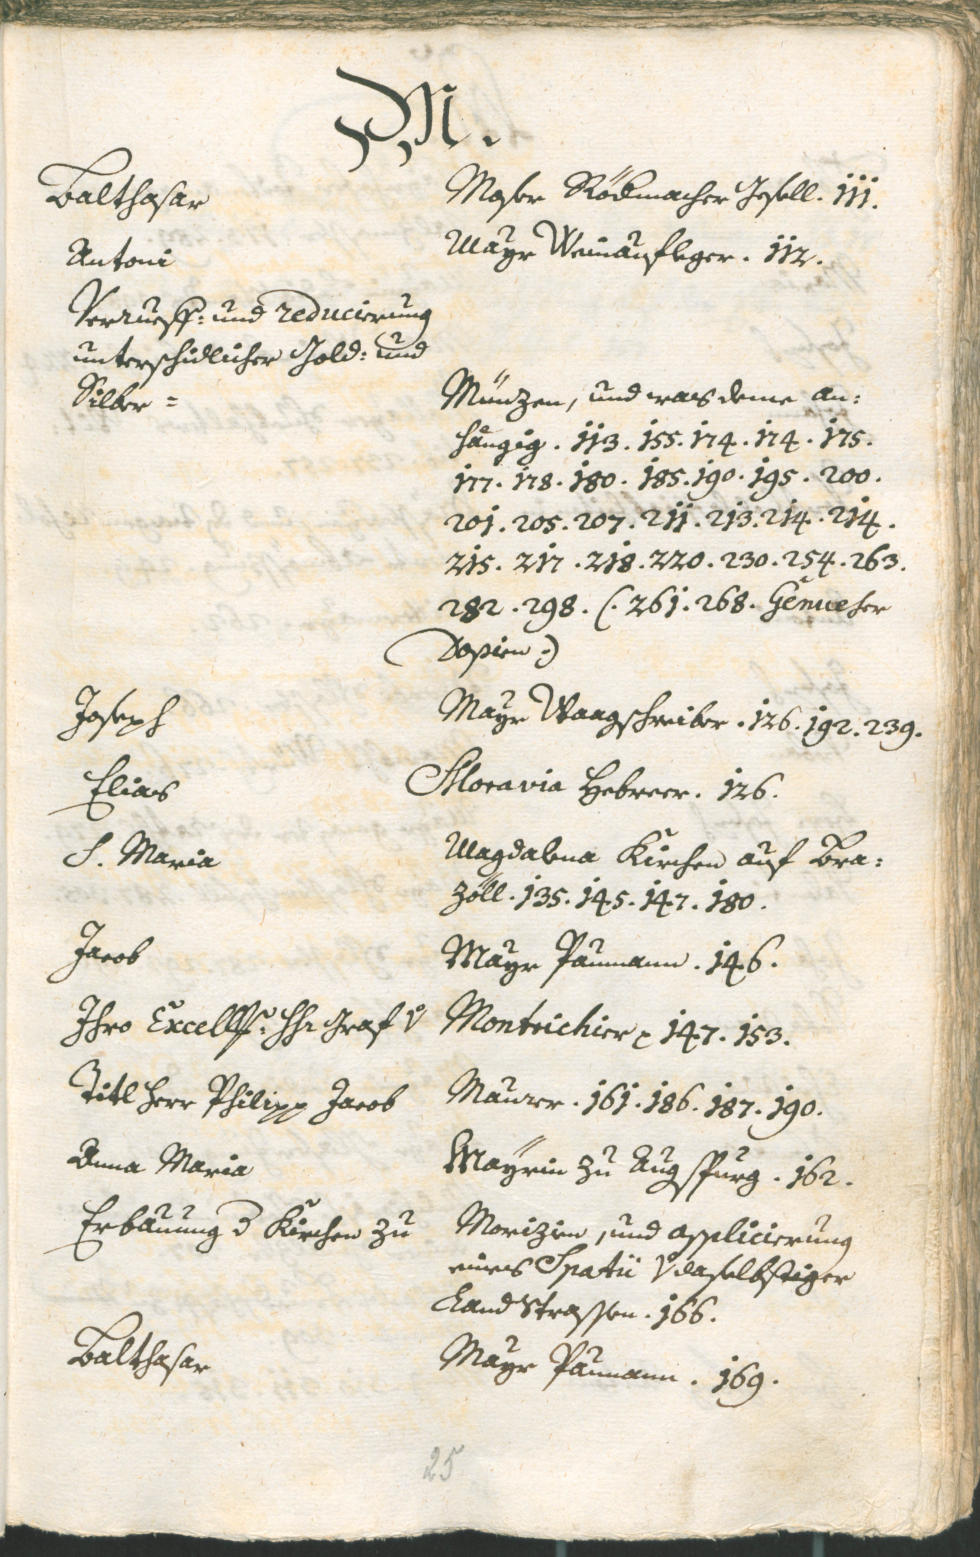 M.
Balthasar Moser Rödlmacher Gesell. 111.
Antoni Mayr Weinaufleger. 112.
Verrueff: und reducierung
unterschidlicher Gold: und
Silber = Münzen, und was deme an:
hängig. 113. 155. 174. 174. 175.
177. 178. 180. 185. 190. 195. 200.
201. 205. 207. 211. 213. 214. 214.
215. 217. 218. 220. 230. 254. 263.
282. 298. (: 261. 268. Genueser
Dopien :)
Joseph Mayr Waagschreiber. 126. 192. 239.
Elias Moravia Hebreer. 126.
S. Maria Magdalena Kirchen auf Bra:
zöll. 135. 145. 147. 180.
Jacob Mayr Paumann. 146.
Ihro Excell: Graf v Montrichier 147. 153.
Titl Herr Philipp Jacob Maurer. 161. 186. 187. 190.
Anna Maria Mayrin zu Augspurg. 162.
Erbauung d Kirchen zu Morizien, und applicierung
eines Spatii v daselbstiger
Landstrassen. 166.
Balthasar Mayr Paumann. 169.
25